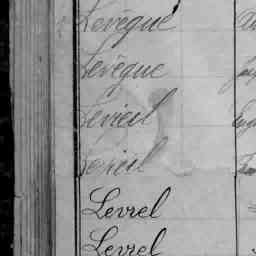 Levêque
Levêque
Levieil
Levieil
Levrel
Levrel